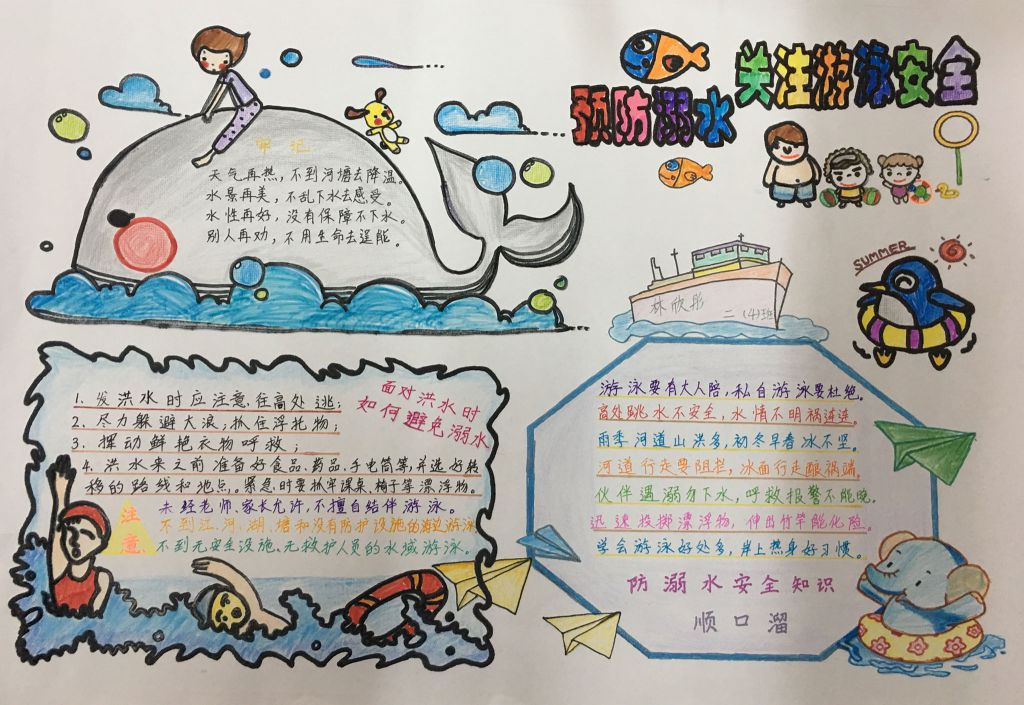 预防溺水
关注游泳安全
牢记
天气再热，不到河塘去降温。
水景再美，不乱下水去感受。
水性再好，没有保障不下水。
别人再劝，不用生命去逞能。
SUMMER
林欣彤
二（4）班
面对洪水时
如何避免溺水
1、发洪水时应注意往高处逃；
2、尽力躲避大浪，抓住浮托物；
3、挥动鲜艳衣物呼救；
4、洪水来之前准备好食品、药品、手电筒等，并选好转
移的路线和地点。紧急时要抓牢课桌、椅子等漂浮物。
注意
未经老师、家长允许，不擅自结伴游泳。
不到江、河、湖、塘和没有防护设施的海边游泳
不到无安全设施、无救护人员的水域游泳。
游泳要有大人陪，私自游泳要杜绝。
高处跳水不安全，水情不明祸连连。
雨季河道山洪多，初冬早春冰不坚。
河道行走要阻拦，冰面行走酿祸端。
伙伴遇溺勿下水，呼救报警不能晚。
迅速投掷漂浮物，伸出竹竿能化险。
学会游泳好处多，岸上热身好习惯。
防溺水安全知识
顺口溜